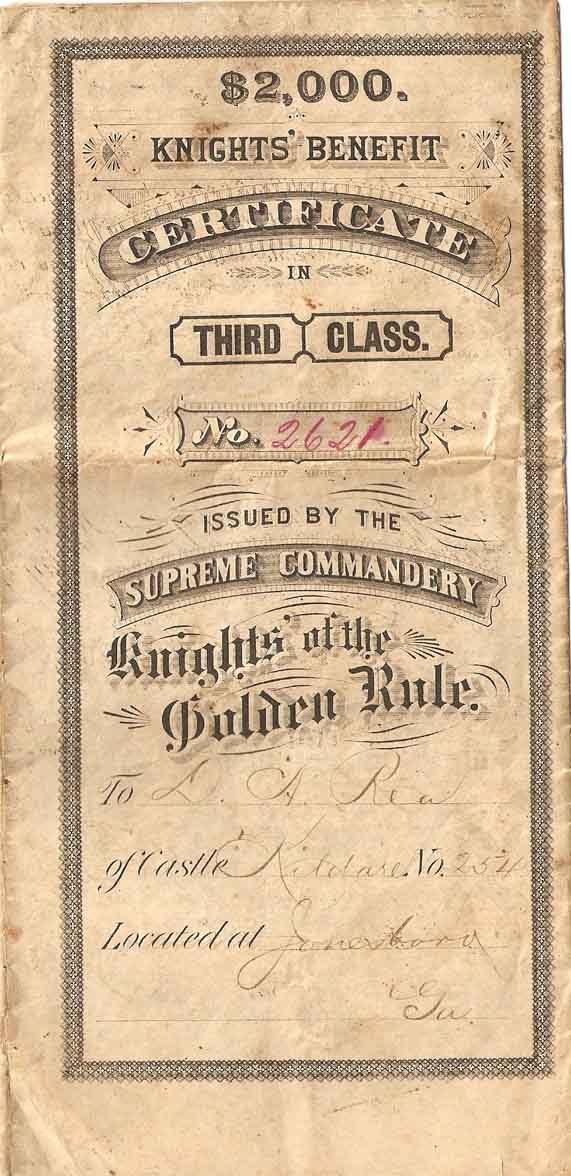 $2,000.
KNIGHTS' BENEFIT
CERTIFICATE
IN
THIRD CLASS.
No. 2621.
ISSUED BY THE
SUPREME COMMANDERY
Knights' of the
Golden Rule.
To D. A. Rea
of Castle Kildare No. 254
Located at Jonesboro
Ga.